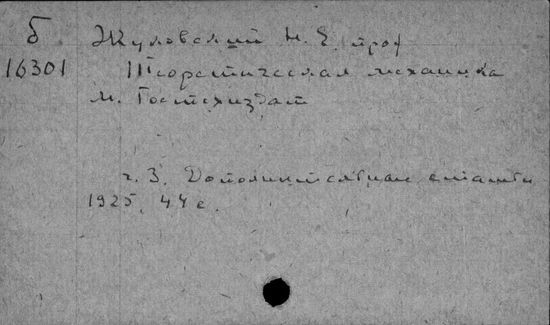 Б Жуковский Н. Е. проф
16301 Теоретическая механика
М. Гостехиздат
ч. 3. Дополнит статьи
1925, 44 с.